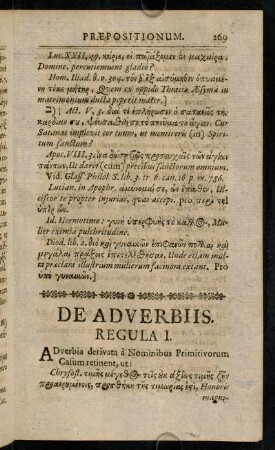 PRÆPOSITIONUM. 269
Luc. XXII, 49. κύριε, εἰ πατάξομεν ἐν μαχαίρᾳ;
Domine, percutiemusne gladio?
Hom. Iliad. θ. v. 304.
Quem ex oppido Thracia Æsymâ in
matrimonium ducta peperit mater.]
Act. V, 3. διὰ τί ἐπλήρωσεν ὁ σατανᾶς τὴν
καρδίαν σου, ψεύσασθαί σε τὸ πνεῦμα τὸ ἅγιον; Cur
Satanas implevit cor tuum, ut mentireris (in) Spiri
tum sanctum?
Apoc. VIII, 3. ἵνα δώσῃ ταῖς προσευχαῖς τῶν ἁγίων
πάντων. Ut daret (cum) precibus sanctorum omnium.
Vid. Glass Philol. S. lib. 3. tr. 6. can. 18. p. m. 756.
Lucian. in Apophr. ἀμυνοῦμαί σε, ὧν ἔπαθον, Ul-
ciscor te propter injurias, quas accepi. pro περὶ vel
ὑπὲρ ὧν.
Id. Hermotimo: γυνὴ ὑπερφυὴς τὸ κάλλος, Mu-
lier eximia pulchritudine.
Diod. lib. 2. διὸ καὶ γυναικῶν ἐπιφανῶν πολλαὶ καὶ
μεγάλαι πράξεις ἐπετελέσθησαν. Unde etiam mul-
ta præclara illustrium mulierum facinora extant. Pro
ὑπὸ γυναικῶν.]
DE ADVERBIIS.
REGULA I.
Adverbia derivata à Nominibus Primitivorum
Casum retinent, ut:
Chrysost. τιμῆς μέγεθος τοῖς οὐκ ἀξίως τιμῆς ζῆν
προαιρουμένοις, προσθήκη τῆς τιμωρίας ἐστί, Honoris
magni-